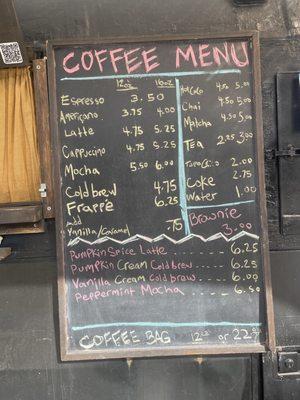 COFFEE MENU
12oz 16oz
Espresso 3.50
Americano 3.75 4.00
Latte 4.75 5.25
Cappuccino 4.75 5.25
Mocha 5.50 6.00
Cold brew 4.75
Frappé 6.25
Add
Vanilla/Caramel .75
Hot Coco 4.50 5.00
Chai 4.50 5.00
Matcha 4.50 5.00
Tea 2.25 3.00
2.00
Coke 2.75
Water 1.00
Brownie
3.00
Pumpkin Spice Latte ....... 6.25
Pumpkin Cream Cold brew .... 6.25
Vanilla Cream Cold brew ..... 6.00
Peppermint Mocha ..... 6.50
COFFEE BAG 12 or 22